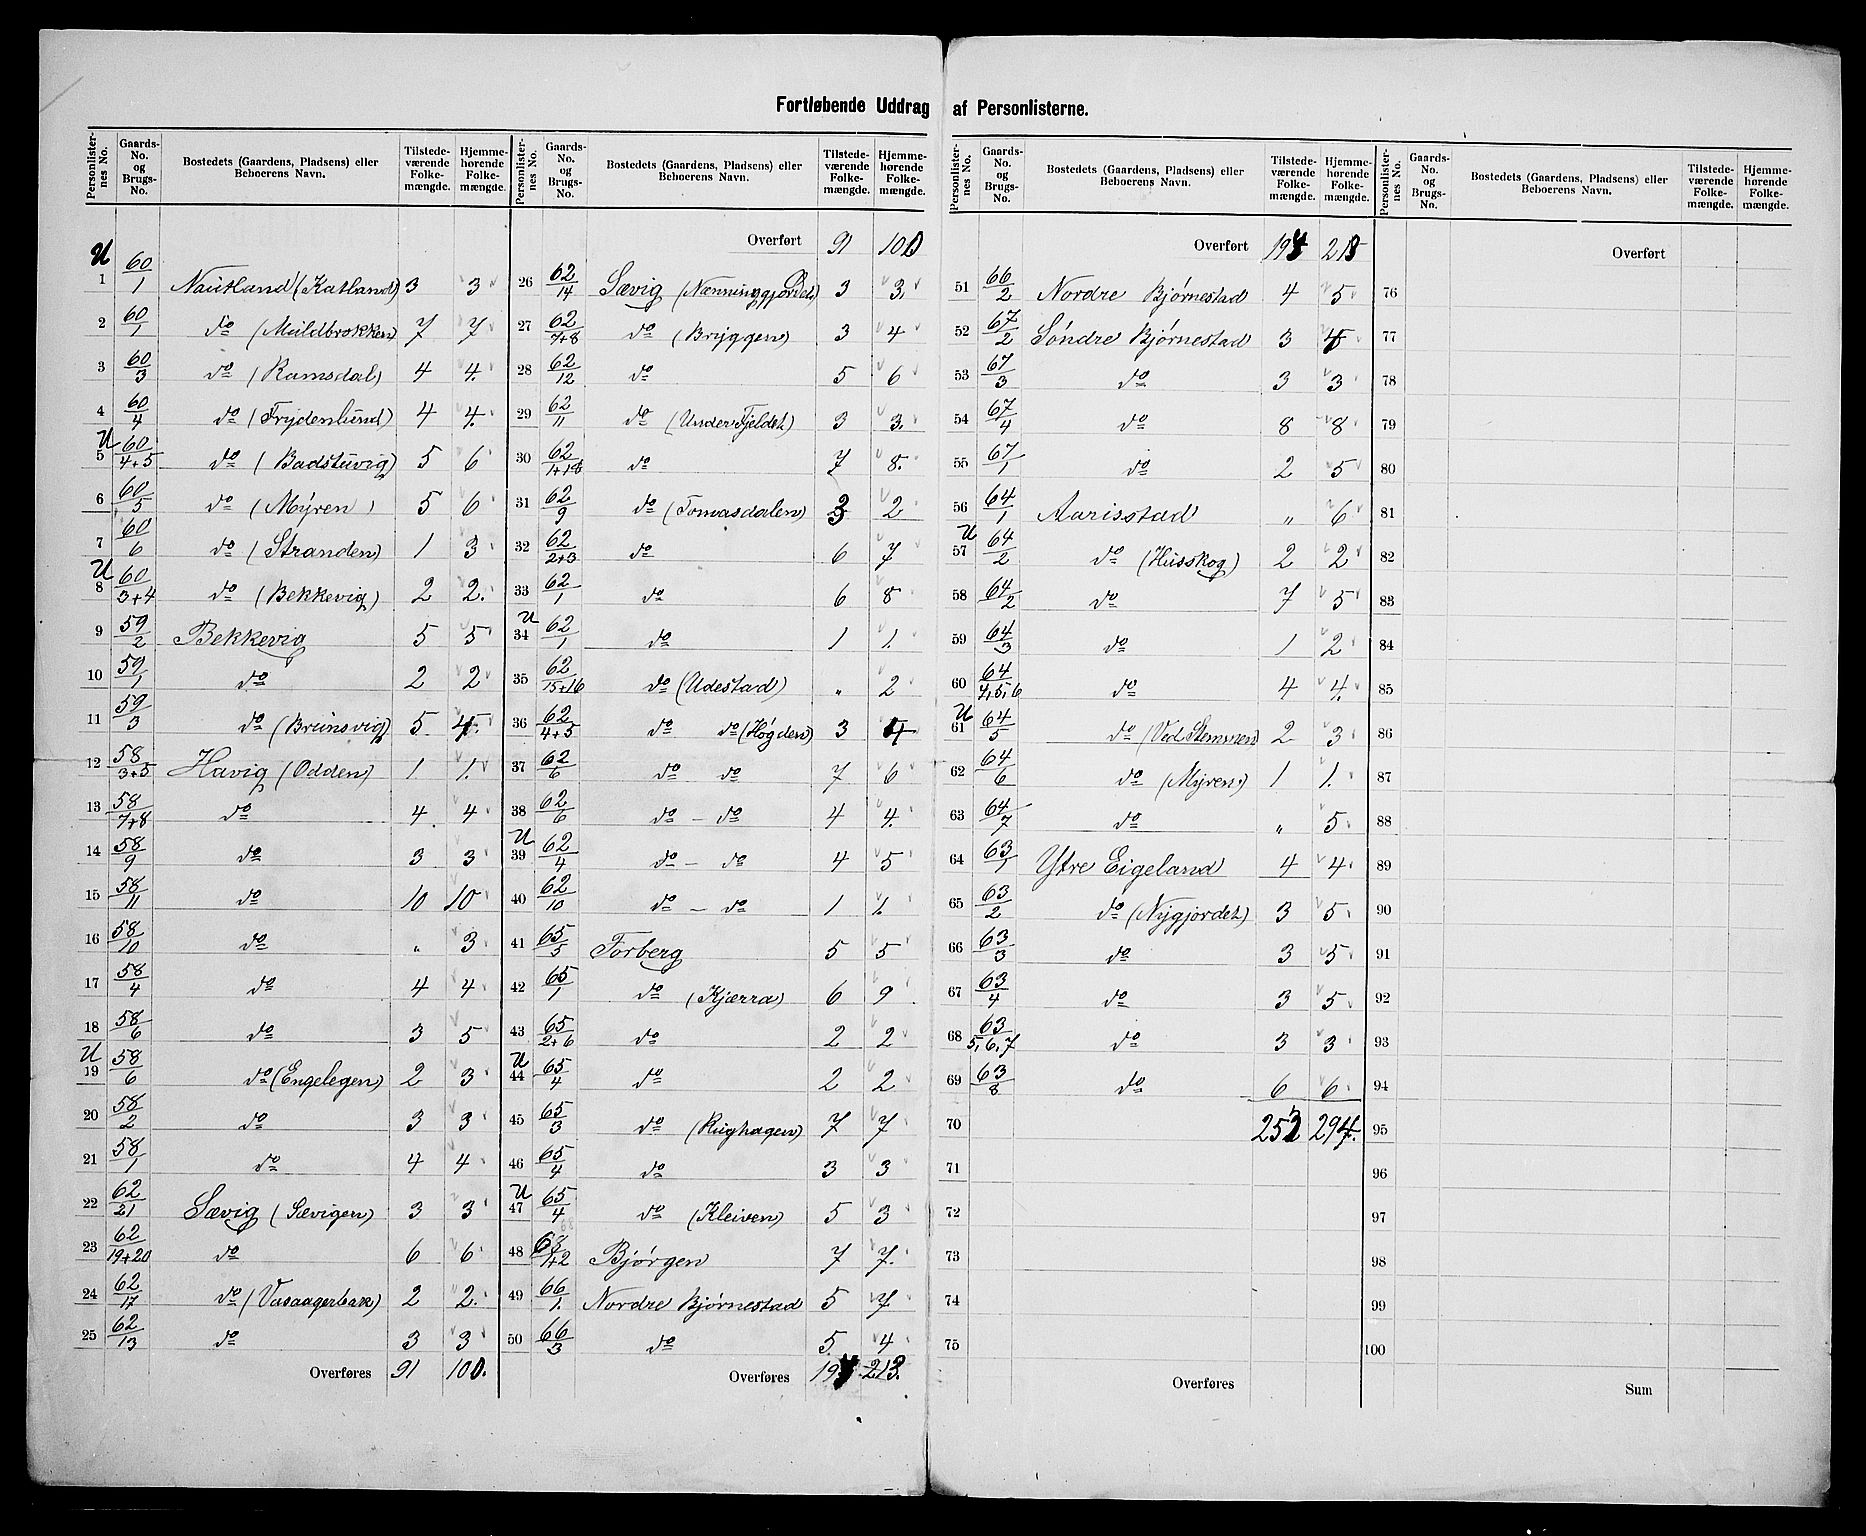 Fortløbende Uddrag af Personlisterne.
Personlister-nes No. | Gaards-No. og Brugs-No. | Bostedets (Gaardens, Pladsens) eller Beboerens Navn. | Tilstede-værende Folke-mængde. | Hjemme-hørende Folke-mængde.
U 1 60/1 Nautland (Katland) 3 3
2 60/1 do (Muldbrokken) 7 7
3 60/3 do (Ramsdal) 4 4.
4 60/4 do (Frydenlund) 4 4.
U 5 60/4+5 do (Badstuvig) 5 6
6 60/5 do (Myren) 5 6
7 60/6 do (Stranden) 1 3
U 8 60/3+4 do (Bekkevig) 2 2.
9 59/2 Bekkevig 5 5
10 59/1 do 2 2
11 59/3 do (Brunsvig) 5
12 58/3+5 Havig (Odden) 1 1.
13 58/7+8 do 4 4
14 58/9 do 3 3
15 58/11 do 10 10
16 58/10 do " 3
17 58/4 do 4 4
18 58/6 do 3 5
U 19 58/6 do (Engelegen) 2 3
20 58/2 do 3 3
21 58/1 do 4 4
22 62/21 Sævig (Sævigen) 3 3
23 62/19+20 do 6 6
24 62/17 do (Vasaagerbak) 2 2.
25 62/13 do 3 3
Overføres 91 100.
Personlister-nes No. | Gaards-No. og Brugs-No. | Bostedets (Gaardens, Pladsens) eller Beboerens Navn. | Tilstede-værende Folke-mængde. | Hjemme-hørende Folke-mængde.
Overført 91 100
26 62/14 Sævig (Nænninggjordet) 3 3.
27 62/7+8 do (Bryggen) 3 4
28 62/12 do 5 6
29 62/11 do (Under Fjeldet) 3 3.
30 62/1+18 do 7 8.
31 62/9 do (Tomasdalen) 3 2
32 62/2+3 do 6 7
33 62/1 do 6 8
U 34 62/1 do 1 1.
35 62/15+16 do (Udestad) " 2
36 62/4+5 do do (Høgden) 3 4
37 62/6 do do 7 6
38 62/6 do - do 4 4.
U 39 62/4 do - do 4 5
40 62/10 do - do 1 1.
41 65/5 Forberg 5 5
42 65/1 do (Kjærra) 6 9
43 65/2+6 do 2 2
U 44 65/4 do 2 2
45 65/3 do (Rughagen) 7 7
46 65/4 do 3 3
U 47 65/4 do (Kleiven) 5 3
48 68/1+2 Bjørgen 7 7.
49 66/1. Nordre Bjørnestad 5 7
50 66/3 do 5. 4
Overføres 213.
Personlister-nes No. | Gaards-No. og Brugs-No. | Bostedets (Gaardens, Pladsens) eller Beboerens Navn. | Tilstede-værende Folke-mængde. | Hjemme-hørende Folke-mængde.
Overført
51 66/2 Nordre Bjørnestad 4 5
52 67/2 Søndre Bjørnestad 3
53 67/3 do 3 3
54 67/4 do 8 8
55 67/1 do 2 5
56 64/1 Aarisstad " 6
U 57 64/2 do (Husskog) 2 2
58 64/2 do 7 5
59 64/3 do 1 2
60 64/4,5,6 do 4 4.
U 61 64/5 do (Ved Stemmen) 2 3
62 64/6 do (Myren) 1 1.
63 64/7 do " 5
64 63/1 Ytre Eigeland 4 4
65 63/2 do (Nygjordet) 3 5
66 63/3 do 3 5
67 63/4 do 3 5
68 63/5,6,7 do 3 3
69 63/8 do 6 6
70 294.
71
72
73
74
75
Overføres
Personlister-nes No. | Gaards-No. og Brugs-No. | Bostedets (Gaardens, Pladsens) eller Beboerens Navn. | Tilstede-værende Folke-mængde. | Hjemme-hørende Folke-mængde.
Overført
76
77
78
79
80
81
82
83
84
85
86
87
88
89
90
91
92
93
94
95
96
97
98
99
100
Sum